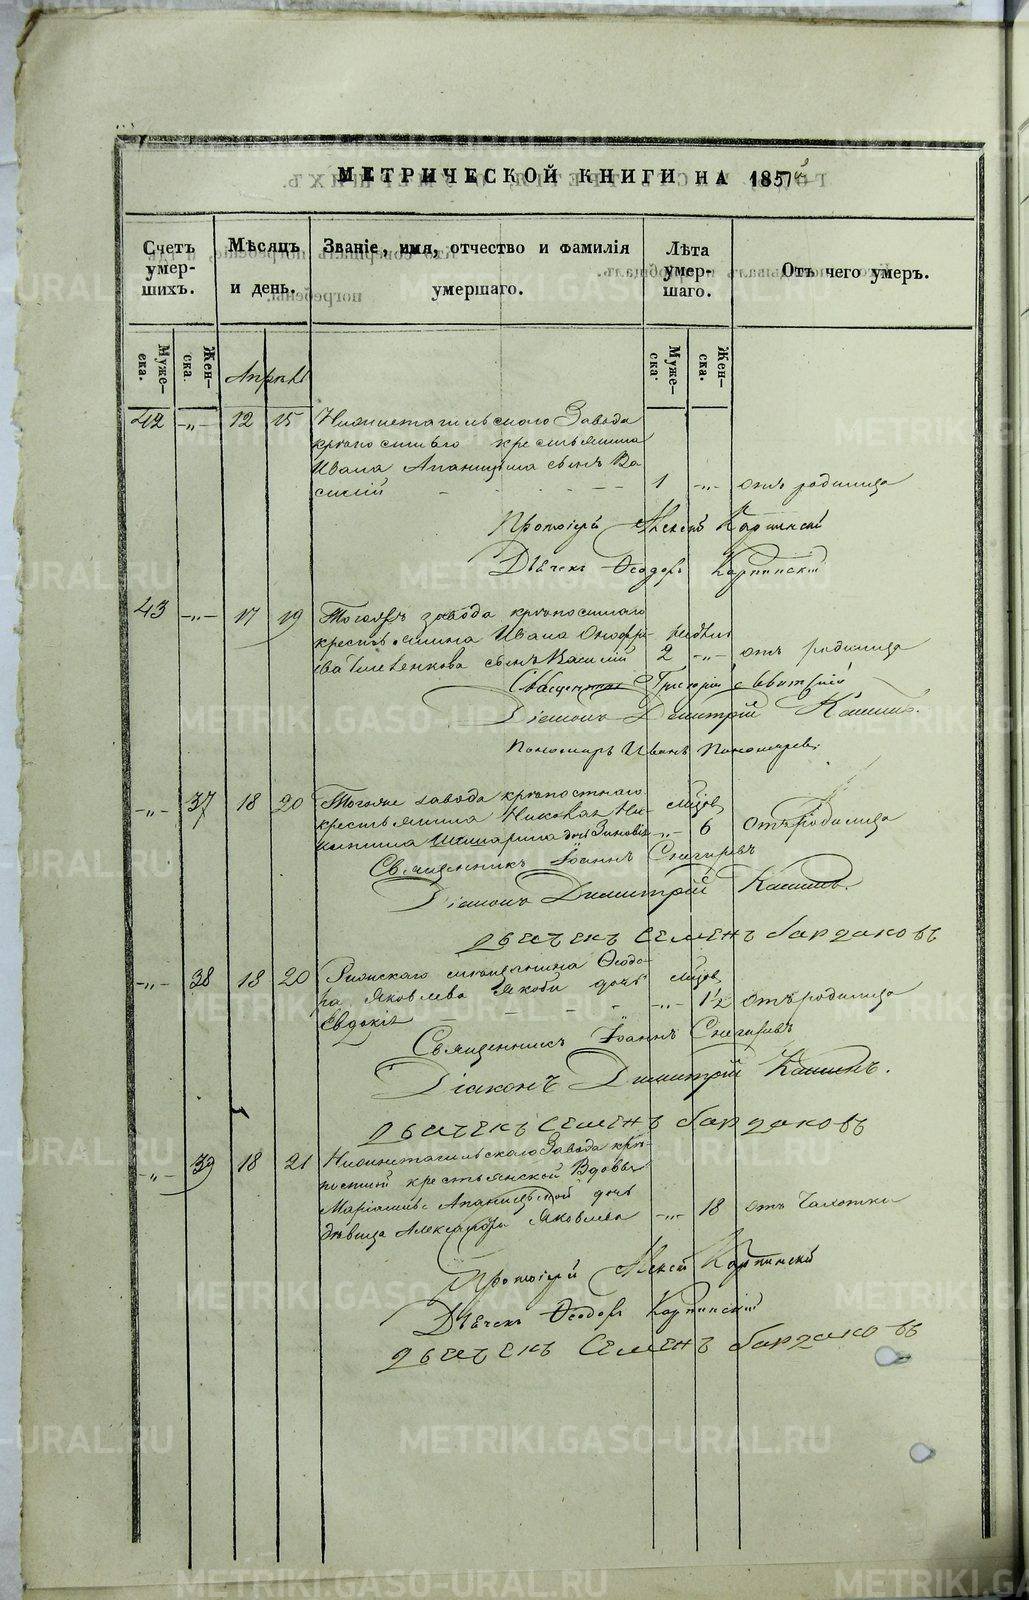 МЕТРИЧЕСКОЙ КНИГИ НА 1857
Счетъ умер- шихъ.
Мѣсяцъ и день.
Званіе, имя, отчество и фамилія умершаго.
Лѣта умер- шаго.
Отъ чего умеръ.
Муже- ска.
Жен- ска.
Апрѣль
Муже- ска.
Жен- ска.
42 -„- 12 15 Нижнетагильскаго Завода
крѣпостнаго крестьянина
Ивана сынъ Ва-
силій 1 -„- отъ родимца
Протоіерей Алексѣй Карпинскій
Дьячекъ Ѳеодоръ Карпинскій
43 -„- 17 19 Тогоже завода крѣпостнаго
крестьянина Ивана Онофрі- недѣль
ева сынъ Василій 2 -„- отъ родимца
Священник Григорій
Діаконъ Димитрій Кашинъ.
Пономарь Иванъ Пономаревъ
-„- 37 18 20 Тогоже завода крѣпостнаго
крестьянина Николая Ни- мѣсяцов
китина дочь Зиновія -„- 6 отъ родимца
Священникъ Іоаннъ Снегиревъ
Діаконъ Димитрій Кашинъ.
дьячекъ Семенъ бардаковъ
-„- 38 18 20 мещанина Ѳеодо- мѣсяцов
ра Яковлева Якоби дочь -„- 1½ отъ родимца
Евдокія
Священникъ Іоаннъ Снегиревъ
Діаконъ Димитрій Кашинъ.
дьячекъ Семенъ бардаковъ
-„- 39 18 21 Нижнетагильскаго Завода крѣ-
постной крестьянской Вдовы
дочь
дѣвица Александра Яковлева -„- 18 отъ Чахотки
Протоіерей Алексѣй Карпинскій
Дьячекъ Ѳеодоръ Карпинскій
дьячекъ Семенъ бардаковъ
METRIKI.GASO-URAL.RU